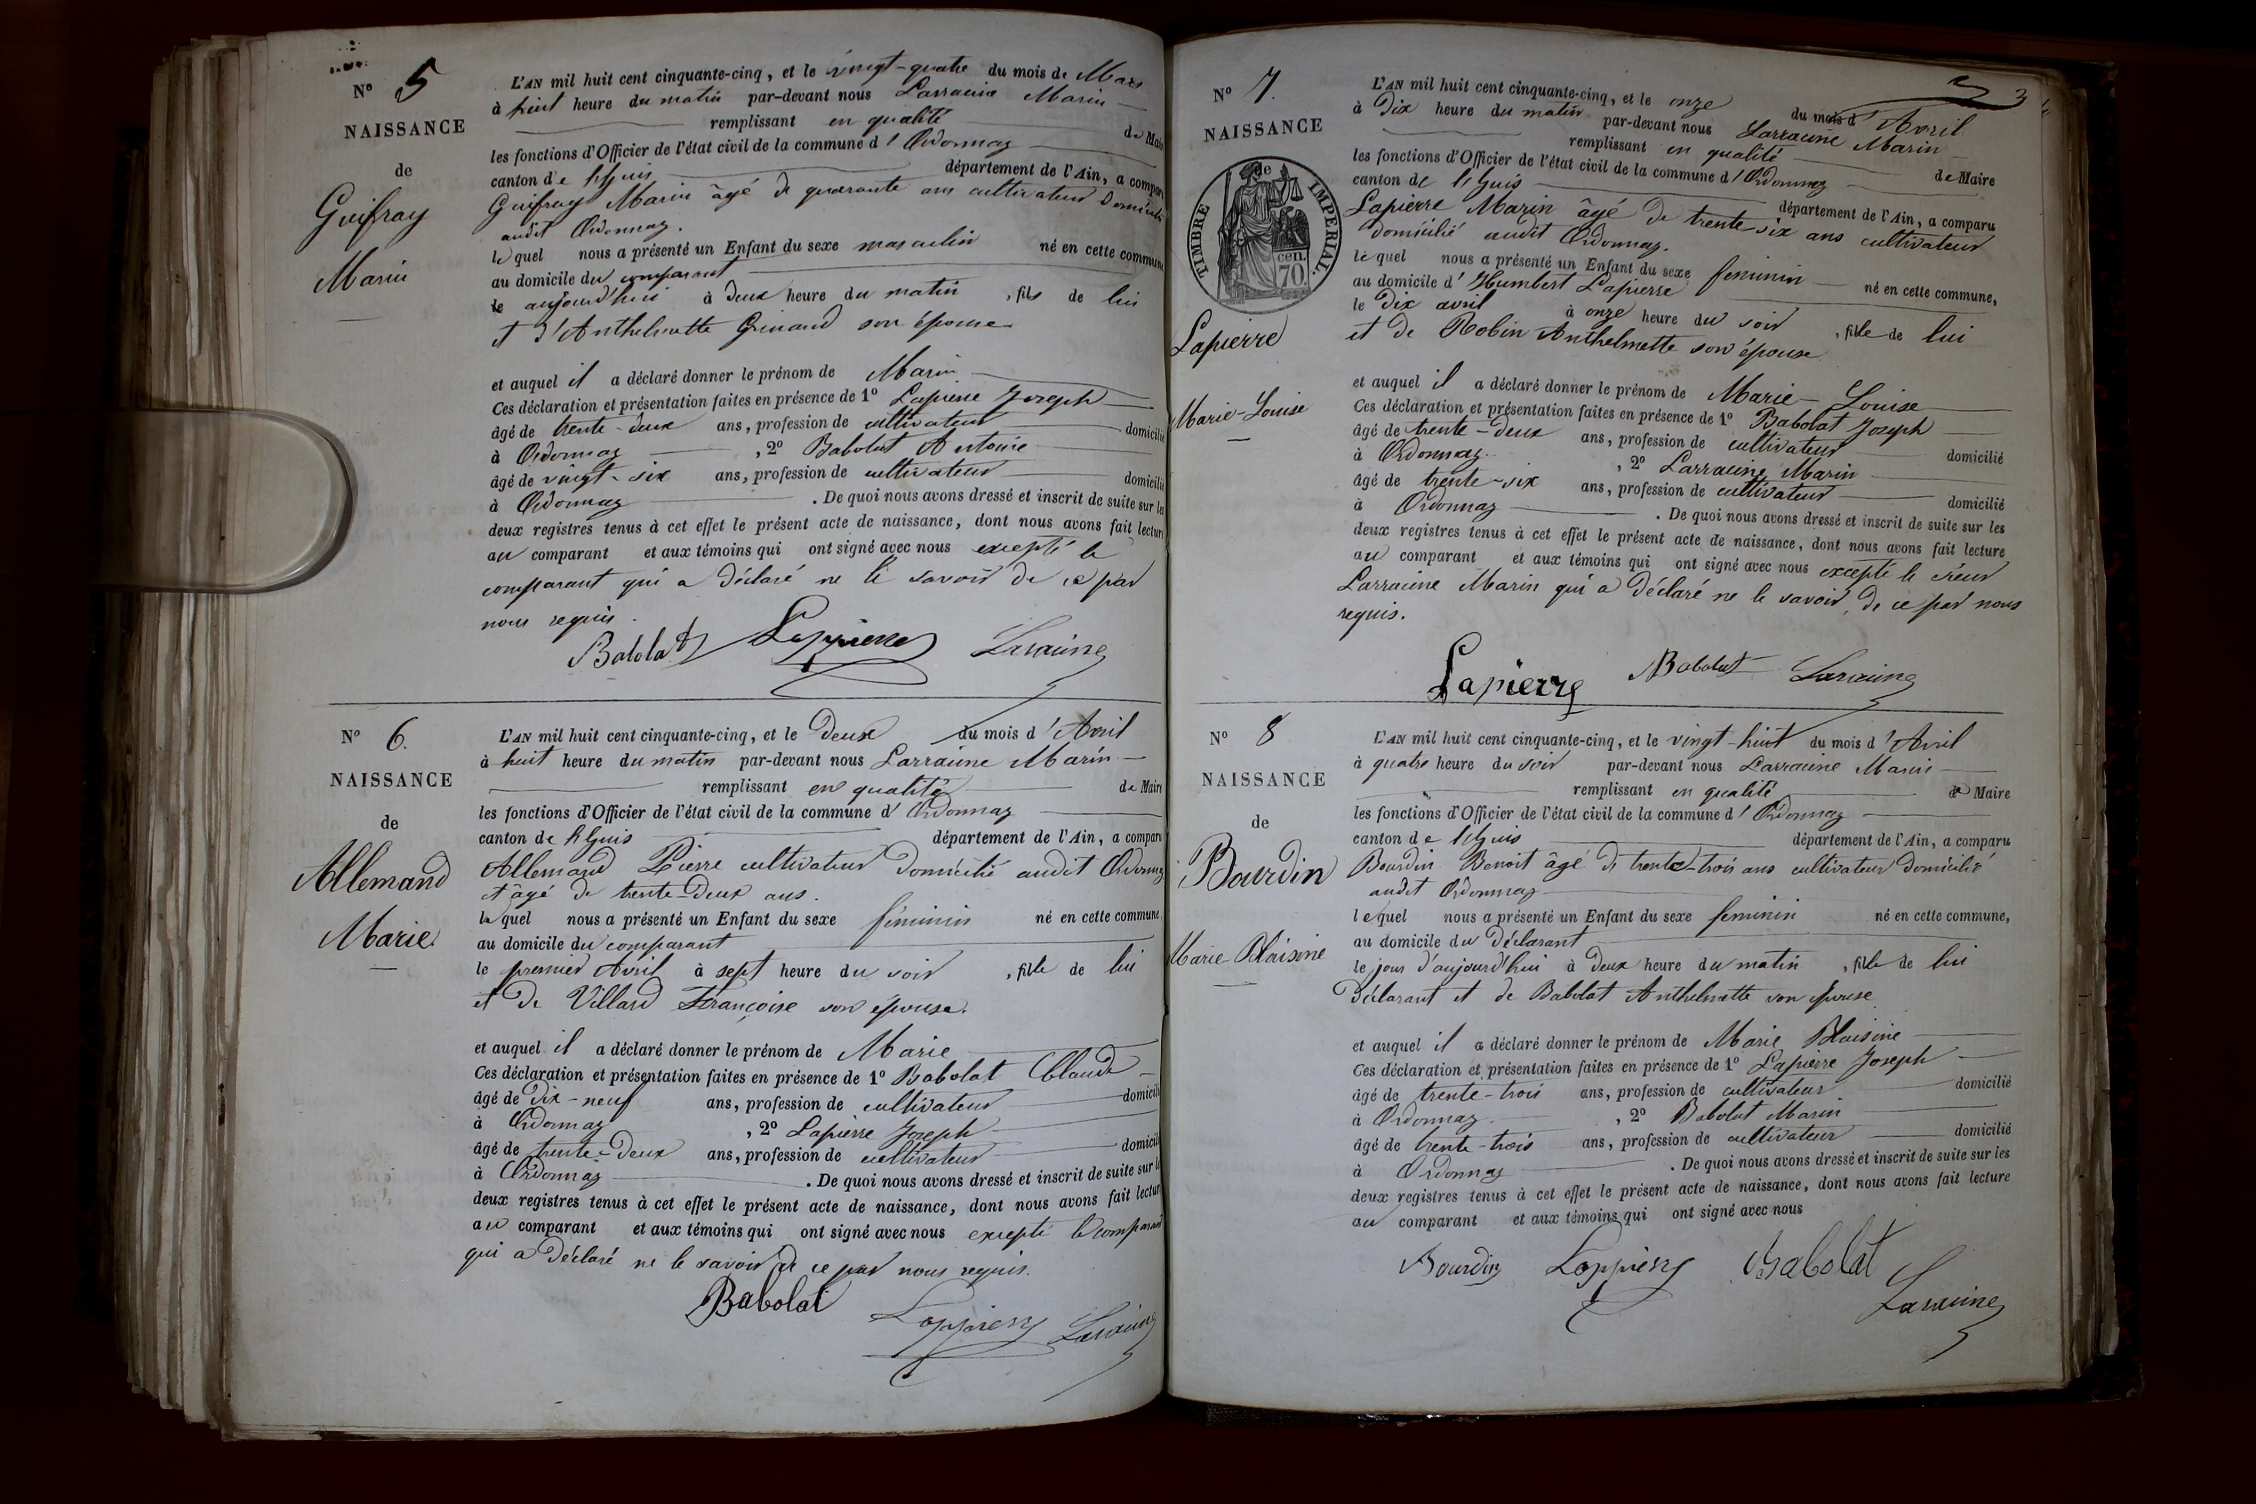 N° 5
NAISSANCE
de
Guifray
Marin
L'AN mil huit cent cinquante-cinq, et le vingt-quatre du mois de Mars
à huit heure du matin par-devant nous Larraine Marin
remplissant en qualité de Maire
les fonctions d'Officier de l'état civil de la commune d'Ordonnaz
canton de lhuis département de l'Ain, a comparu
Guifray Marin âgé de quarante ans cultivateur domicilié
audit Ordonnaz.
lequel nous a présenté un Enfant du sexe masculin né en cette commune
au domicile du comparant
le aujourd'hui à deux heure du matin, fils de lui
et d'Anthelmette Grinand son épouse
et auquel il a déclaré donner le prénom de Marin
Ces déclaration et présentation faites en présence de 1° Lapierre Joseph
âgé de trente-deux ans, profession de cultivateur domicilié
à Ordonnaz, 2° Babolat Antoine
âgé de vingt-six ans, profession de cultivateur domicilié
à Ordonnaz. De quoi nous avons dressé et inscrit de suite sur les
deux registres tenus à cet effet le présent acte de naissance, dont nous avons fait lecture
au comparant et aux témoins qui ont signé avec nous excepté le
comparant qui a déclaré ne le savoir de ce par
nous requis.
Babolat Lappierre Laraine
N° 6.
NAISSANCE
de
Allemand
Marie
L'AN mil huit cent cinquante-cinq, et le deux du mois d'Avril
à huit heure du matin par-devant nous Larraine Marin
remplissant en qualité de Maire
les fonctions d'Officier de l'état civil de la commune d'Ordonnaz
canton de lhuis département de l'Ain, a comparu
Allemand Pierre cultivateur domicilié audit Ordonnaz
et âgé de trente-deux ans.
lequel nous a présenté un Enfant du sexe féminin né en cette commune
au domicile du comparant
le premier Avril à sept heure du soir, fille de lui
et de Villard Françoise son épouse.
et auquel il a déclaré donner le prénom de Marie
Ces déclaration et présentation faites en présence de 1° Babolat Claude
âgé de dix-neuf ans, profession de cultivateur domicilié
à Ordonnaz, 2° Lapierre Joseph
âgé de trente-deux ans, profession de cultivateur domicilié
à Ordonnaz. De quoi nous avons dressé et inscrit de suite sur les
deux registres tenus à cet effet le présent acte de naissance, dont nous avons fait lecture
au comparant et aux témoins qui ont signé avec nous excepté le comparant
qui a déclaré ne le savoir de ce par nous requis.
Babolat Lappierre Laraine
3
N° 7.
NAISSANCE
de
TIMBRE IMPERIAL.
cen. 70
Lapierre
Marie-Louise
L'AN mil huit cent cinquante-cinq, et le onze du mois d'Avril
à dix heure du matin par-devant nous Larraine Marin
remplissant en qualité de Maire
les fonctions d'Officier de l'état civil de la commune d'Ordonnaz
canton de lhuis département de l'Ain, a comparu
Lapierre Marin âgé de trente-six ans cultivateur
domicilié audit Ordonnaz.
lequel nous a présenté un Enfant du sexe feminin né en cette commune,
au domicile d'Humbert Lapierre
le dix avril à onze heure du soir, fille de lui
et de Robin Anthelmette son épouse
et auquel il a déclaré donner le prénom de Marie-Louise
Ces déclaration et présentation faites en présence de 1° Babolat Joseph
âgé de trente-deux ans, profession de cultivateur domicilié
à Ordonnaz, 2° Larraine Marin
âgé de trente-six ans, profession de cultivateur domicilié
à Ordonnaz. De quoi nous avons dressé et inscrit de suite sur les
deux registres tenus à cet effet le présent acte de naissance, dont nous avons fait lecture
au comparant et aux témoins qui ont signé avec nous excepté le sieur
Larraine Marin qui a déclaré ne le savoir, de ce par nous
requis.
Lapierre Babolat Laraine
N° 8
NAISSANCE
de
Bourdin
Marie Blaisine
L'AN mil huit cent cinquante-cinq, et le vingt-huit du mois d'Avril
à quatre heure du soir par-devant nous Larraine Marin
remplissant en qualité de Maire
les fonctions d'Officier de l'état civil de la commune d'Ordonnaz
canton de lhuis département de l'Ain, a comparu
Bourdin Benoit âgé de trente-trois ans cultivateur domicilié
audit Ordonnaz
lequel nous a présenté un Enfant du sexe feminin né en cette commune,
au domicile du déclarant
le jour d'aujourd'hui à deux heure du matin, fille de lui
déclarant et de Babolat Anthelmette son épouse
et auquel il a déclaré donner le prénom de Marie Blaisine
Ces déclaration et présentation faites en présence de 1° Lapierre Joseph
âgé de trente-trois ans, profession de cultivateur domicilié
à Ordonnaz, 2° Babolat Marin
âgé de trente-trois ans, profession de cultivateur domicilié
à Ordonnaz. De quoi nous avons dressé et inscrit de suite sur les
deux registres tenus à cet effet le présent acte de naissance, dont nous avons fait lecture
au comparant et aux témoins qui ont signé avec nous
Bourdin Lappierre Babolat
Laraine